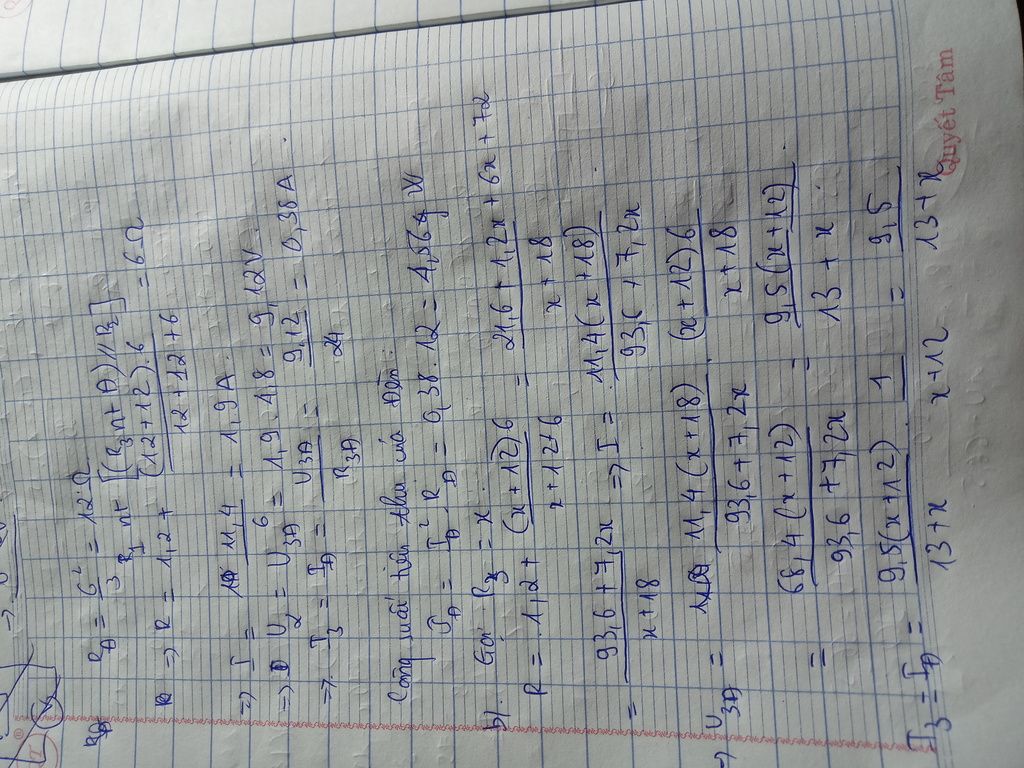 R_Đ = 6²/3 = 12 Ω
R₁ nt [(R₃ nt Đ) // R₂]
=> R = 1,2 + (12+12).6 / 12+12+6 = 6 Ω
=> I = 11,4/6 = 1,9 A.
=> U₂ = U₃Đ = 1,9 . 4,8 = 9,12 V.
=> I₃ = I_Đ = U₃Đ/R₃Đ = 9,12/24 = 0,38 A.
Công suất tiêu thụ của Đèn:
= I_Đ² . R_Đ = 0,38 . 12 = 4,56 W
b). Gọi R₃ = x.
R = 1,2 + (x+12)6 / x+12+6 = 21,6 + 1,2x + 6x + 72 / x+18
= 93,6 + 7,2x / x+18 => I = 11,4(x+18) / 93,6 + 7,2x
=> U₃Đ = 11,4(x+18) / 93,6 + 7,2x . (x+12)6 / x+18
= 68,4(x+12) / 93,6 + 7,2x = 9,5(x+12) / 13 + x
I₃ = I_Đ = 9,5(x+12) / 13+x . 1 / x+12 = 9,5 / 13+x
Quyết Tâm